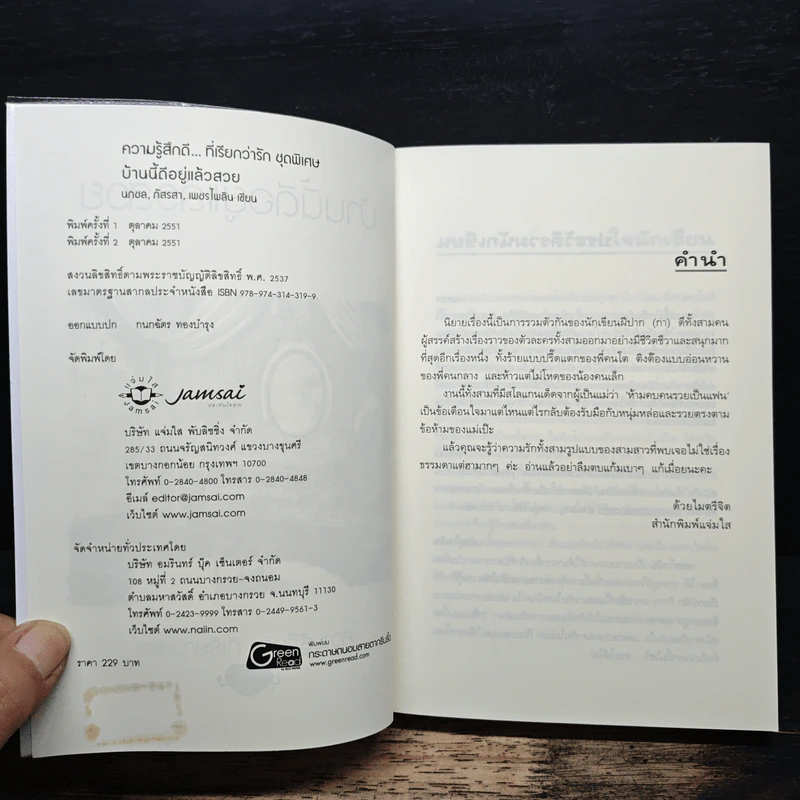 ความรู้สึกดี... ที่เรียกว่ารัก ชุดพิเศษ
บ้านนี้ดีอยู่แล้วสวย
นภชล, ภัสรสา, เพชรไพลิน เขียน
พิมพ์ครั้งที่ 1 ตุลาคม 2551
พิมพ์ครั้งที่ 2 ตุลาคม 2551
สงวนลิขสิทธิ์ตามพระราชบัญญัติลิขสิทธิ์ พ.ศ. 2537
เลขมาตรฐานสากลประจำหนังสือ ISBN 978-974-314-319-9
ออกแบบปก กนกฉัตร ทองบำรุง
จัดพิมพ์โดย
แจ่มใส
JAMSAI
Jamsai
บริษัท แจ่มใส พับลิชชิ่ง จำกัด
285/33 ถนนจรัญสนิทวงศ์ แขวงบางขุนศรี
เขตบางกอกน้อย กรุงเทพฯ 10700
โทรศัพท์ 0-2840-4800 โทรสาร 0-2840-4848
อีเมล์ editor@jamsai.com
เว็บไซต์ www.jamsai.com
จัดจำหน่ายทั่วประเทศโดย
บริษัท อมรินทร์ บุ๊ค เซ็นเตอร์ จำกัด
108 หมู่ที่ 2 ถนนบางกรวย-จงถนอม
ตำบลมหาสวัสดิ์ อำเภอบางกรวย จ.นนทบุรี 11130
โทรศัพท์ 0-2423-9999 โทรสาร 0-2449-9561-3
เว็บไซต์ www.naiin.com
ราคา 229 บาท
Green Read
พิมพ์บน
กระดาษถนอมสายตากรีนรี้ด
www.greenread.com
คำนำ
นิยายเรื่องนี้เป็นการรวมตัวกันของนักเขียนฝีปาก (กา) ดีทั้งสามคน
ผู้สรรค์สร้างเรื่องราวของตัวละครทั้งสามออกมาอย่างมีชีวิตชีวาและสนุกมาก
ที่สุดอีกเรื่องหนึ่ง ทั้งร้ายแบบปรี๊ดแตกของพี่คนโต ติงต๊องแบบอ่อนหวาน
ของพี่คนกลาง และห้าวแต่ไม่โหดของน้องคนเล็ก
งานนี้ทั้งสามที่มีสโลแกนเด็ดจากผู้เป็นแม่ว่า ‘ห้ามคบคนรวยเป็นแฟน’
เป็นข้อเตือนใจมาแต่ไหนแต่ไรกลับต้องรับมือกับหนุ่มหล่อและรวยตรงตาม
ข้อห้ามของแม่เป๊ะ
แล้วคุณจะรู้ว่าความรักทั้งสามรูปแบบของสามสาวที่พบเจอไม่ใช่เรื่อง
ธรรมดาแต่ฮามากๆ ค่ะ อ่านแล้วอย่าลืมตบแก้มเบาๆ แก้เมื่อยนะคะ
ด้วยไมตรีจิต
สำนักพิมพ์แจ่มใส